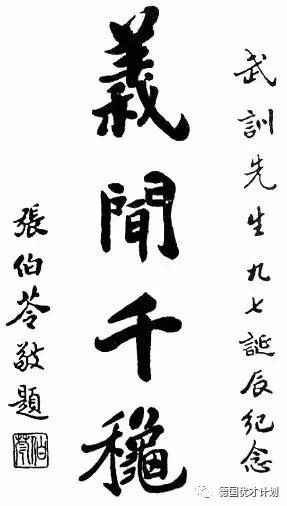 武訓先生九七誕辰紀念
義聞千穐
張伯苓敬題
伯苓
德国优才计划